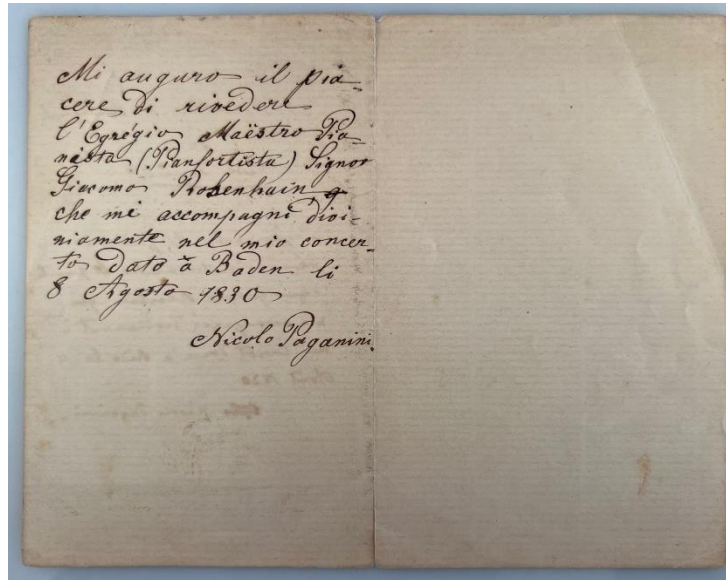 Mi auguro il pia-
cere di rivedere
l'Egrégio Maëstro Pia-
nista (Pianfortista) Signor
Giacomo Rosenhain
che mi accompagni divi-
niamente nel mio concer-
to dato à Baden li
8 Agosto 1830
Nicolo Paganini